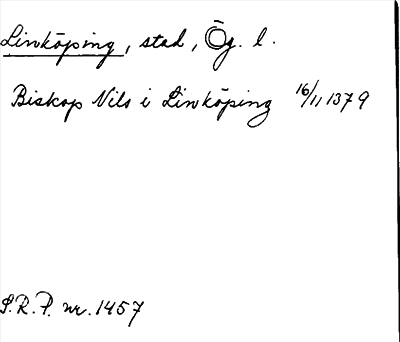 Linköping, stad, Ög. l.
Biskop Nils i Linköping 16/11 1379
S.R.P. nr. 1457